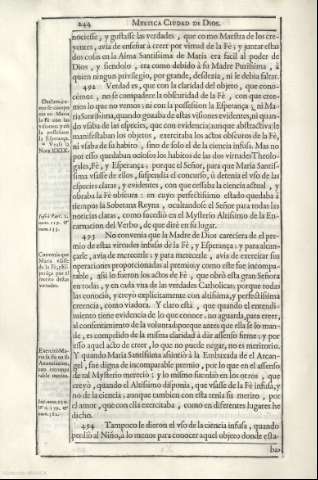 244 MYSTICA CIUDAD DE DIOS.
nociesse, y gustasse las verdades, que como Maestra de los cre-
yentes, avia de enseñar à creer por virtud de la Fè; y juntar estas
dos cosas en la Alma Santissima de Maria era facil al poder de
Dios, y siendolo, era como debido à su Madre Purissima, à
quien ningun privilegio, por grande, desdezia, ni le debia faltar.
492 Verdad es, que con la claridad del objeto, que cono-
cemos, no se compadece la obscuridad de la Fè, con que cree-
mos lo que no vemos; ni con la possession la Esperança, ni Ma-
ria Santissima, quando gozaba de estas visiones evidentes, ni quan-
do vsaba de las especies, que con evidencia, aunque abstractiva lo
manifestaban los objetos, exercitaba los actos obscuros de la Fè,
ni vsaba de su habito, sino de solo el de la ciencia infusa. Mas no
por esso quedaban ociosos los habitos de las dos virtudes Theolo-
gales, Fè, y Esperança; porque el Señor, para que Maria Santis-
sima vsasse de ellos, suspendia el concurso, ò detenia el vso de las
especies claras, y evidentes, con que cessaba la ciencia actual, y
obraba la Fè obscura: en cuyo perfectissimo estado quedaba à
tiempos la Soberana Reyna, ocultandose el Señor para todas las
noticias claras, como sucediò en el Mysterio Altissimo de la En-
carnacion del Verbo, de que dirè en su lugar.
493 No convenia que la Madre de Dios careciera de el pre-
mio de estas virtudes infusas de la Fè, y Esperança; y para alcan-
çarle, avia de merecerle: y para merecerle, avia de exercitar sus
operaciones proporcionadas al premio; y como este fue incompa-
rable, assi lo fueron los actos de Fè, que obrò esta gran Señora
en todas, y en cada vna de las verdades Catholicas; porque todas
las conociò, y creyò explicitamente con altissima, y perfectissima
creencia, como viadora. Y claro està, que quando el entendi-
miento tiene evidencia de lo que conoce, no aguarda, para creer,
al consentimiento de la voluntad, porque antes que ella se lo man-
de, es compelido de la misma claridad à dàr assenso firme; y por
esso aquel acto de creer, lo que no puede negar, no es meritorio.
Y quando Maria Santissima assintiò à la Embaxada de el Arcan-
gel, fue digna de incomparable premio, por lo que en el assenso
de tal Mysterio mereciò: y lo mismo sucediò en los otros, que
creyò, quando el Altissimo disponia, que vsasse de la Fè infusa, y
no de la ciencia; aunque tambien con esta tenia su merito, por
el amor, que con ella exercitaba, como en diferentes lugares he
dicho.
494 Tampoco le dieron el vso de la ciencia infusa, quando
perdiò al Niño, à lo menos para conocer aquel objeto donde esta-
ba,
Nota XXIX.
Convenia que
Maria vsasse
de la Fè, y Es-
perança por el
merito